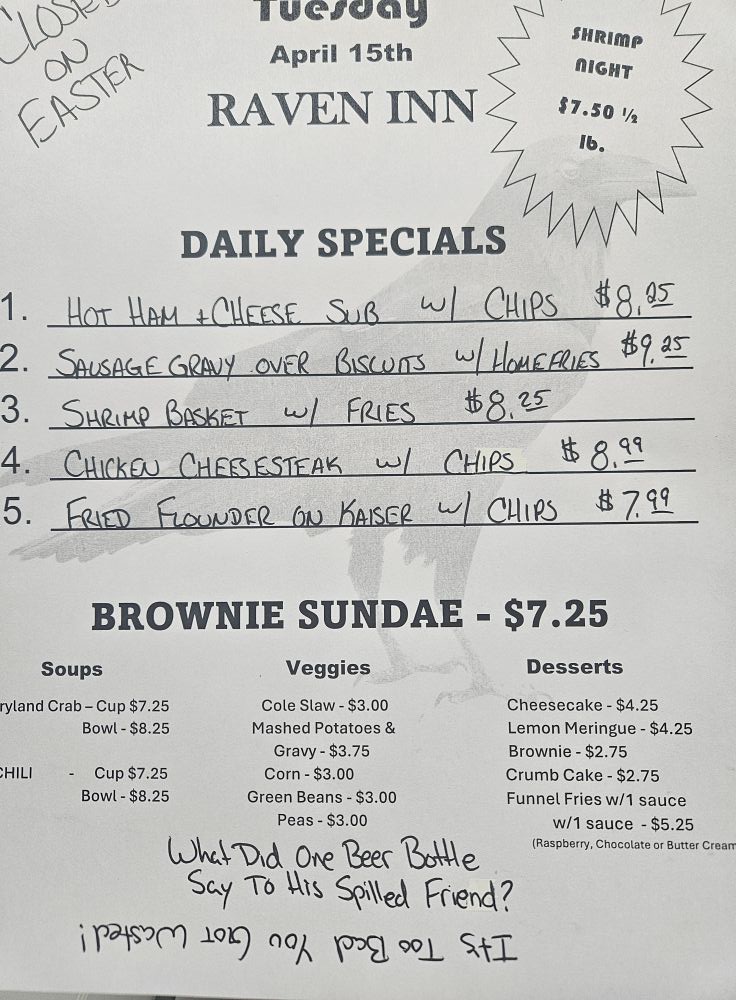 CLOSED
ON
EASTER
Tuesday
April 15th
RAVEN INN
SHRIMP
NIGHT
$7.50 ½
lb.
DAILY SPECIALS
1. HOT HAM + CHEESE SUB W/ CHIPS $8.25
2. SAUSAGE GRAVY OVER BISCUITS W/ HOMEFRIES $9.25
3. SHRIMP BASKET W/ FRIES $8.25
4. CHICKEN CHEESESTEAK W/ CHIPS $8.99
5. FRIED FLOUNDER ON KAISER W/ CHIPS $7.99
BROWNIE SUNDAE - $7.25
Soups
ryland Crab – Cup $7.25
Bowl - $8.25
CHILI - Cup $7.25
Bowl - $8.25
Veggies
Cole Slaw - $3.00
Mashed Potatoes &
Gravy - $3.75
Corn - $3.00
Green Beans - $3.00
Peas - $3.00
Desserts
Cheesecake - $4.25
Lemon Meringue - $4.25
Brownie - $2.75
Crumb Cake - $2.75
Funnel Fries w/1 sauce
w/1 sauce - $5.25
(Raspberry, Chocolate or Butter Cream
What Did One Beer Bottle
Say To His Spilled Friend?
It's Too Bad You Got Wasted!